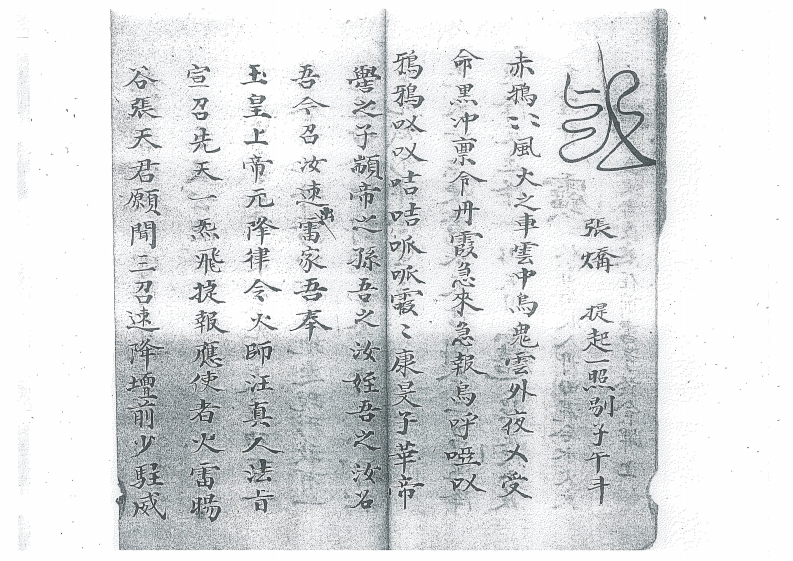 張燆 提起一照别子午斗
赤鴉〻風火之車雲中烏鬼雲外夜乂受
命黑冲禀令丹霞急來急報烏呼啞以
鴉鴉以以咭咭哌哌霞〻康旲子華帝
譽之子顓帝之孫吾之汝姪吾之汝名
吾今召汝速出雷家吾奉
玉皇上帝元降律令火師汪真人法旨
宣召先天一炁飛捷報應使者火雷腸
谷張天君願聞三召速降壇前少駐威